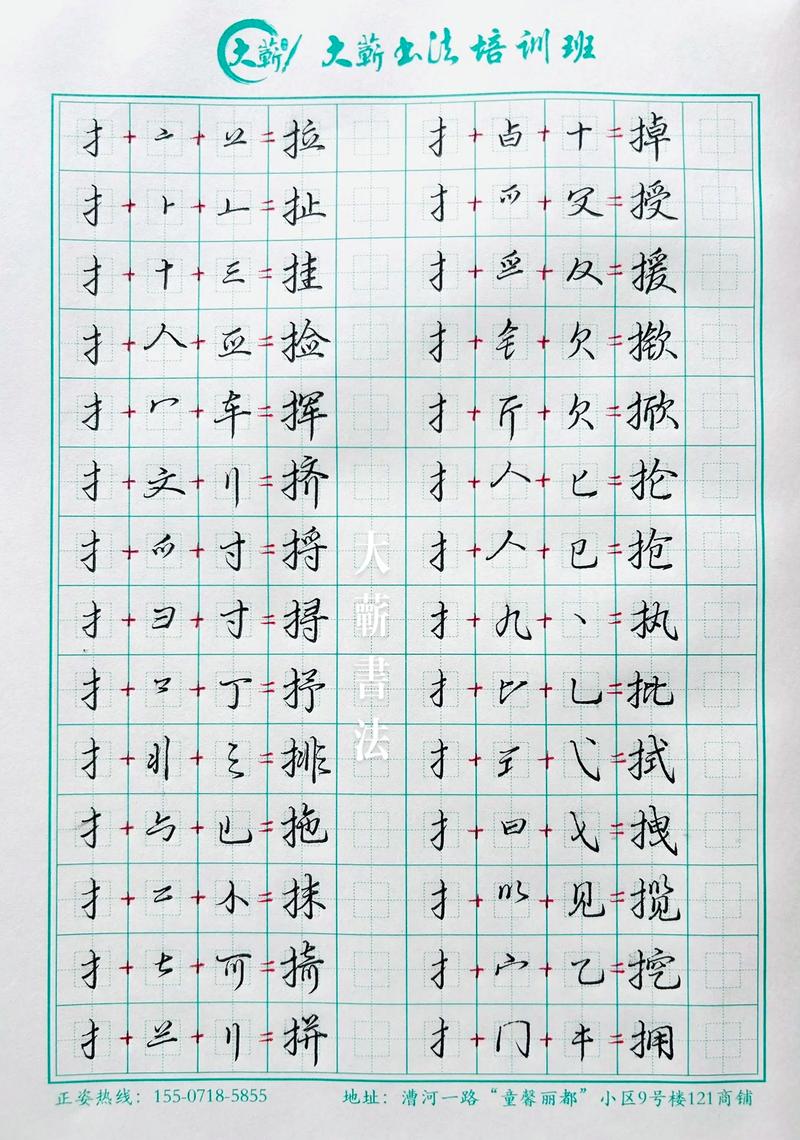 大蕲书法培训班
扌+亠+䒑=拉 扌+占+十=掉
扌+⺊+丄=扯 扌+爫+冖又=授
扌+十+三=挂 扌+爫一+友=援
扌+人+亚=捡 扌+钅+欠=揿
扌+冖+车=挥 扌+斤+欠=掀
扌+文+刂=挤 扌+人+匕=抡
扌+爫+寸=捋 扌+人+㔾=抢
扌+彐+寸=挦 扌+九+丶=执
扌+龴+丁=抒 扌+上+乚=批
扌+非=排 扌+工+弋=拭
扌+𠂉+也=拖 扌+曰+乂=拽
扌+二+小=抹 扌+见=揽
扌+大+可=掎 扌+宀+乙=挖
扌+䒑+刂=拼 扌+门+キ=拥
大蕲書法
正姿热线：155-0718-5855 地址：漕河一路“童馨丽都”小区9号楼121商铺